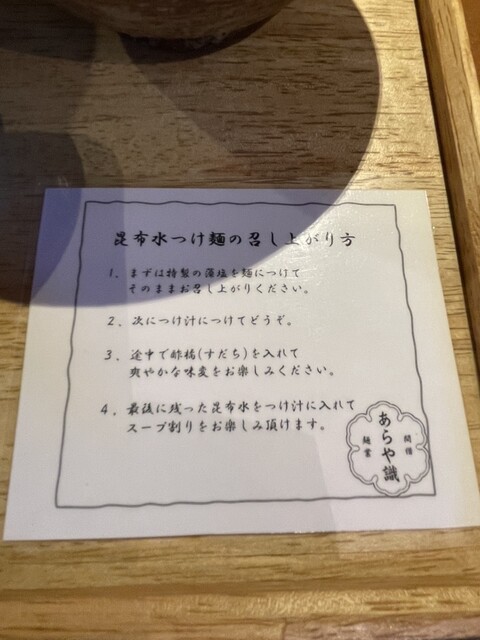 昆布水つけ麺の召し上がり方
1. まずは特製の藻塩を麺につけて
そのままお召し上がりください。
2. 次につけ汁につけてどうぞ。
3. 途中で酢橘(すだち)を入れて
爽やかな味変をお楽しみください。
4. 最後に残った昆布水をつけ汁に入れて
スープ割りをお楽しみ頂けます。
あらや識
麺業